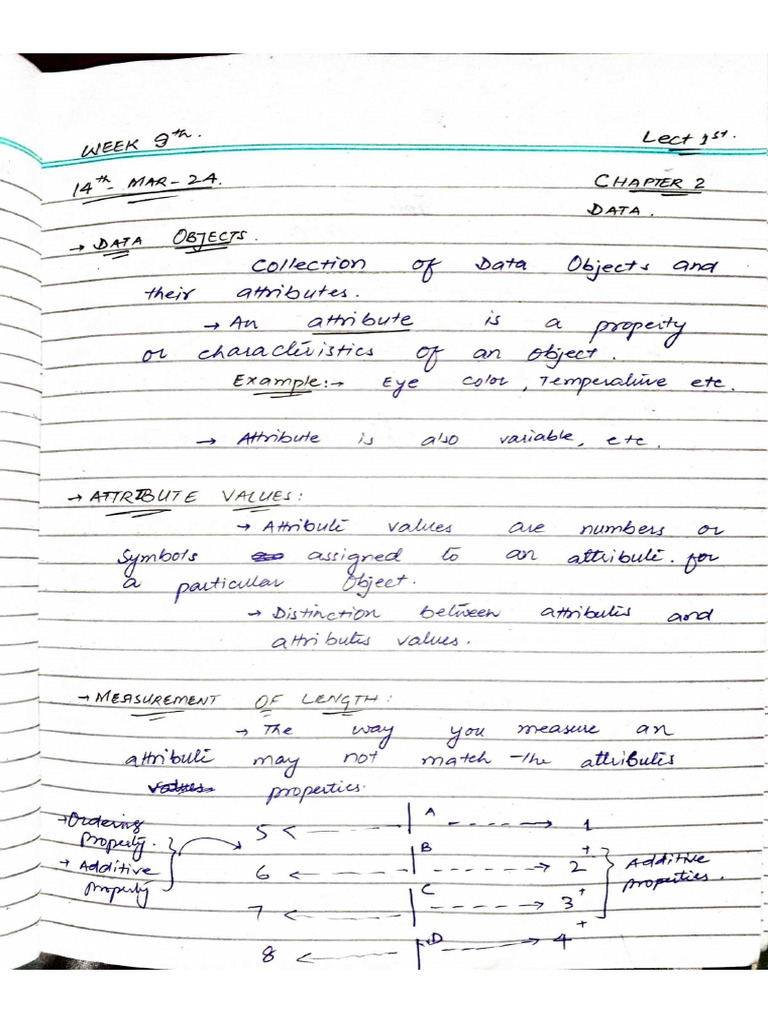 WEEK 9th.
Lect 1st.
14th - MAR - 24.
CHAPTER 2
DATA.
→ DATA OBJECTS.
Collection of Data Objects and
their attributes.
→ An attribute is a property
or characteristics of an object.
Example:→ Eye color, Temperature etc.
→ Attribute is also variable, etc.
→ ATTRIBUTE VALUES:
→ Attribute values are numbers or
Symbols assigned to an attribute. for
a particular Object.
→ Distinction between attributes and
attributes values.
→ MEASUREMENT OF LENGTH:
→ The way you measure an
attribute may not match the attributes
values properties.
→ Ordering
Property.
→ Additive
Property
5 A 1
6 B 2 +
7 C 3 +
8 D 4 +
Additive
Properties.